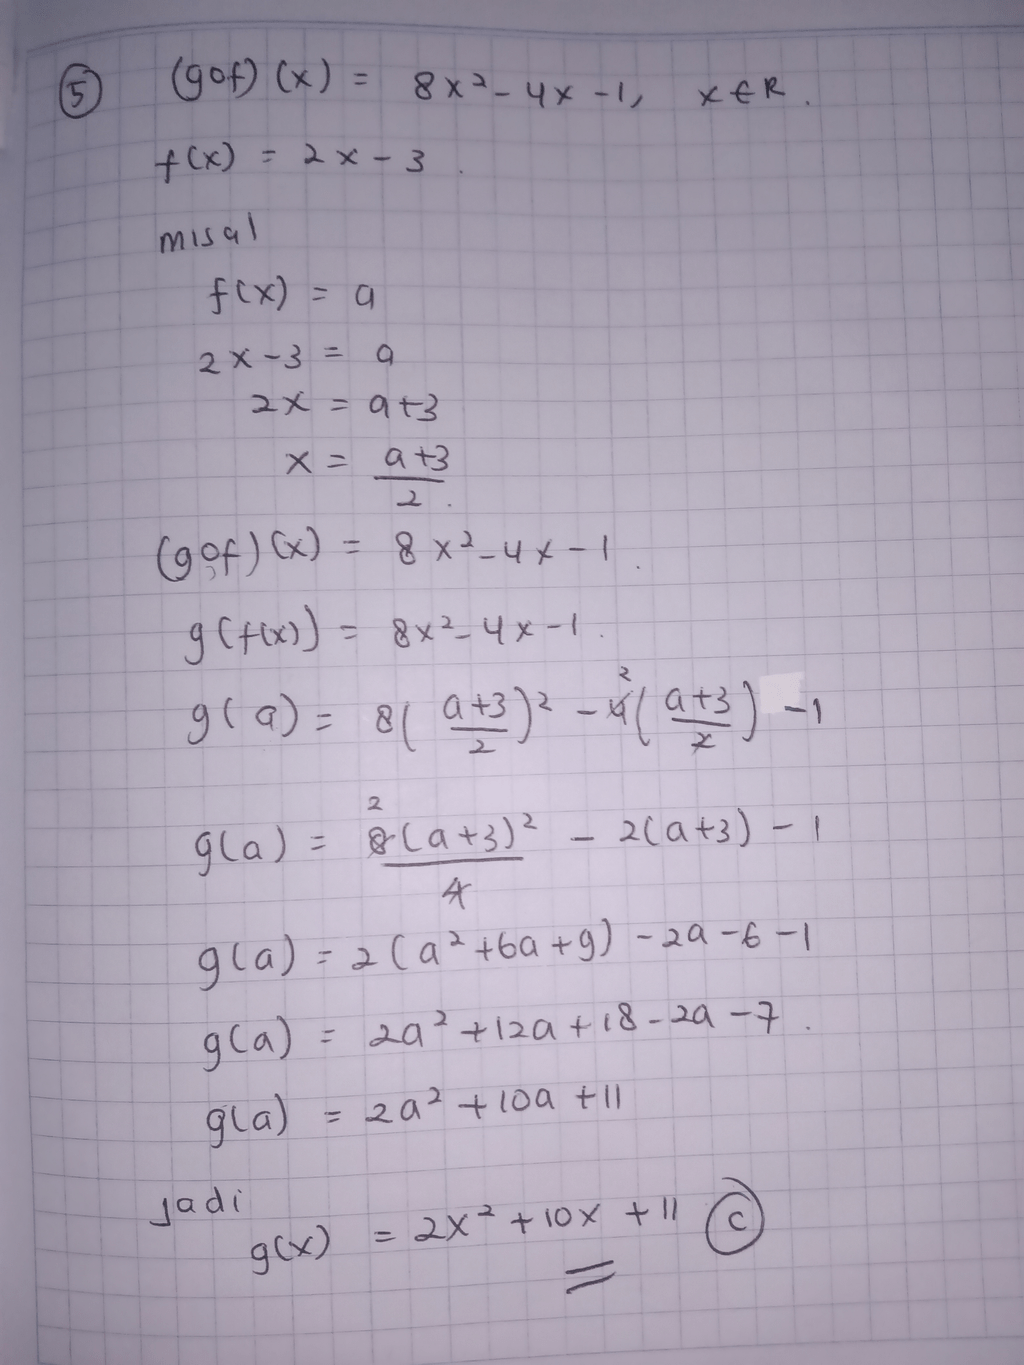 5 (gof)(x) = 8x² - 4x - 1, x ∈ R.
f(x) = 2x - 3.
misal
f(x) = a
2x - 3 = a
2x = a+3
x = (a+3)/2.
(gof)(x) = 8x² - 4x - 1.
g(f(x)) = 8x² - 4x - 1.
g(a) = 8((a+3)/2)² - 4̸ ²((a+3)/2̸) - 1
g(a) = 8̸ ²(a+3)²/4̸ - 2(a+3) - 1
g(a) = 2(a² + 6a + 9) - 2a - 6 - 1
g(a) = 2a² + 12a + 18 - 2a - 7.
g(a) = 2a² + 10a + 11
Jadi
g(x) = 2x² + 10x + 11 C